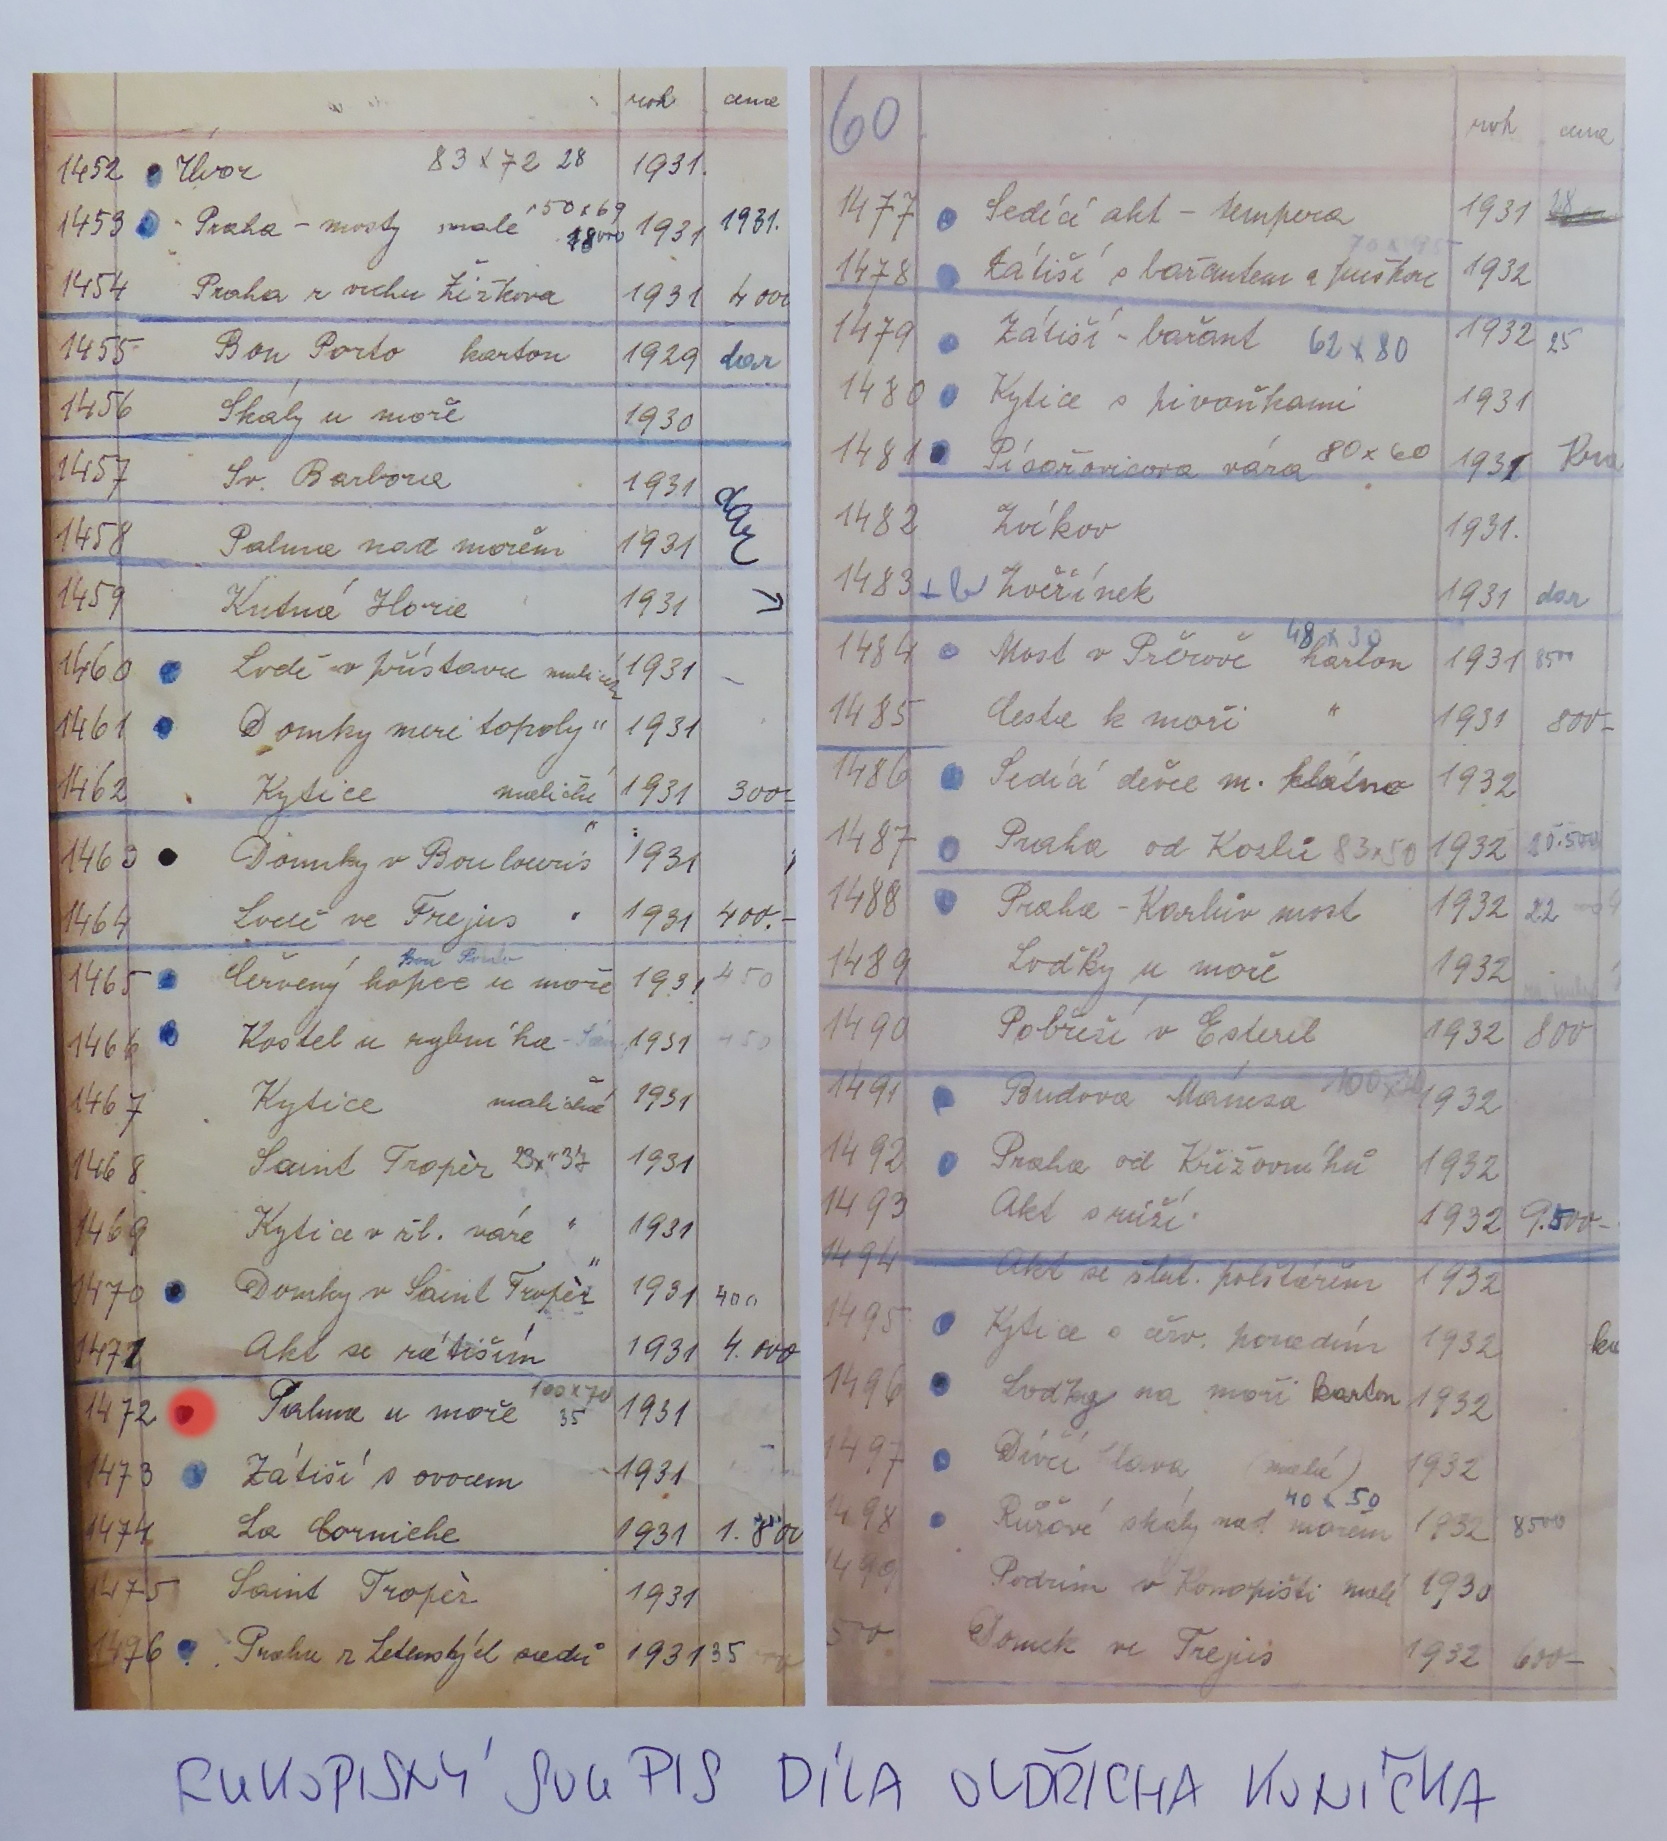 rok cena
1452 Úvoz 83 x 72 28 1931.
1453 Praha - mosty malé 50 x 69 18000 1931 1931.
1454 Praha z vrchu Žižkova 1931 4 000
1455 Bon Porto karton 1929 dar
1456 Skály u moře 1930
1457 Sv. Barbora 1931
dar
1458 Palma nad mořem 1931
1459 Kutná Hora 1931
1460 Lodě v přístavu 1931 -
1461 Domky mezi topoly " 1931
1462 Kytice maličké 1931 300-
1463 Domky v Boulouris " 1931
1464 Lodě ve Frejus " 1931 400.-
Bon Porto
1465 Červený kopec u moře 1931 450
1466 Kostel u rybníka 1931 450
1467 Kytice maličké 1931
1468 Saint Tropèz 23x"37 1931
1469 Kytice v žl. váze " 1931
1470 Domky v Saint Tropèz " 1931 400
1471 Akt se zátiším 1931 4.000
1472 Palma u moře 100 x 70 35 1931
1473 Zátiší s ovocem 1931
1474 La Corniche 1931 1.800
1475 Saint Tropèz 1931
1476 Praha z Letenských sadů 1931 35
60 rok cena
1477 Sedící akt - tempera 1931 28
70 x 95
1478 Zátiší s bažantem a puškou 1932
1479 Zátiší - bažant 62 x 80 1932 25
1480 Kytice s pivoňkami 1931
1481 váza 80 x 60 1931
1482 Zvíkov 1931.
1483 Zvěřínek 1931 dar
48 x 30
1484 Most v karton 1931 8500
1485 Cesta k moři " 1931 800-
1486 Sedící děvče m. plátno 1932
1487 Praha od Kozlů 83x50 1932 20.500
1488 Praha - Karlův most 1932 22
1489 Loďky u moře 1932
1490 Pobřeží v Esterel 1932 800
1491 Budova Mánesa 1932
1492 Praha od Křižovníků 1932
1493 Akt s růží 1932 9.500-
1494 Akt se žlut. polštářem 1932
1495 Kytice s červ. pozadím 1932
1496 Loďky na moři karton 1932
1497 Dívčí hlava (malá) 1932
40 x 50
1498 Růžové skály nad mořem 1932 8500
1499 Podzim v Konopišti malé 1930
500 Domek ve Frejus 1932 600-
RUKOPISNÝ SOUPIS DÍLA OLDŘICHA KONÍČKA